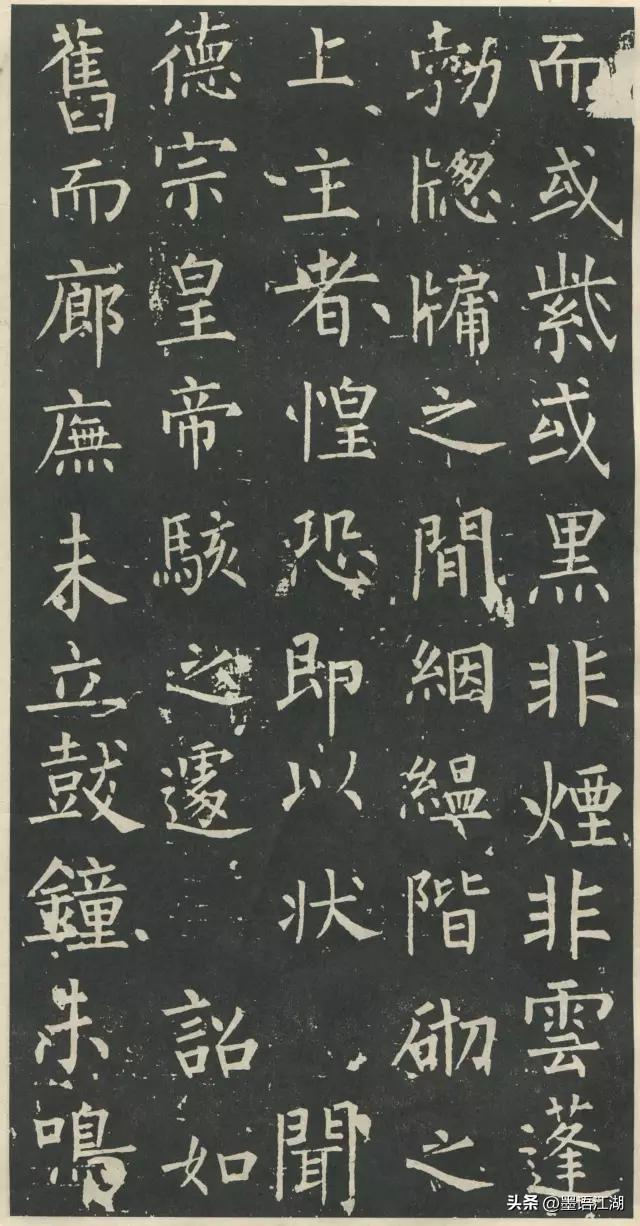 而或紫或黑非煙非雲蓬
勃牕牖之間絪緼階砌之
上主者惶恐即以状聞
德宗皇帝駭之遽詔如
舊而廊廡未立鼓鐘未鳴
头条 @墨语江湖